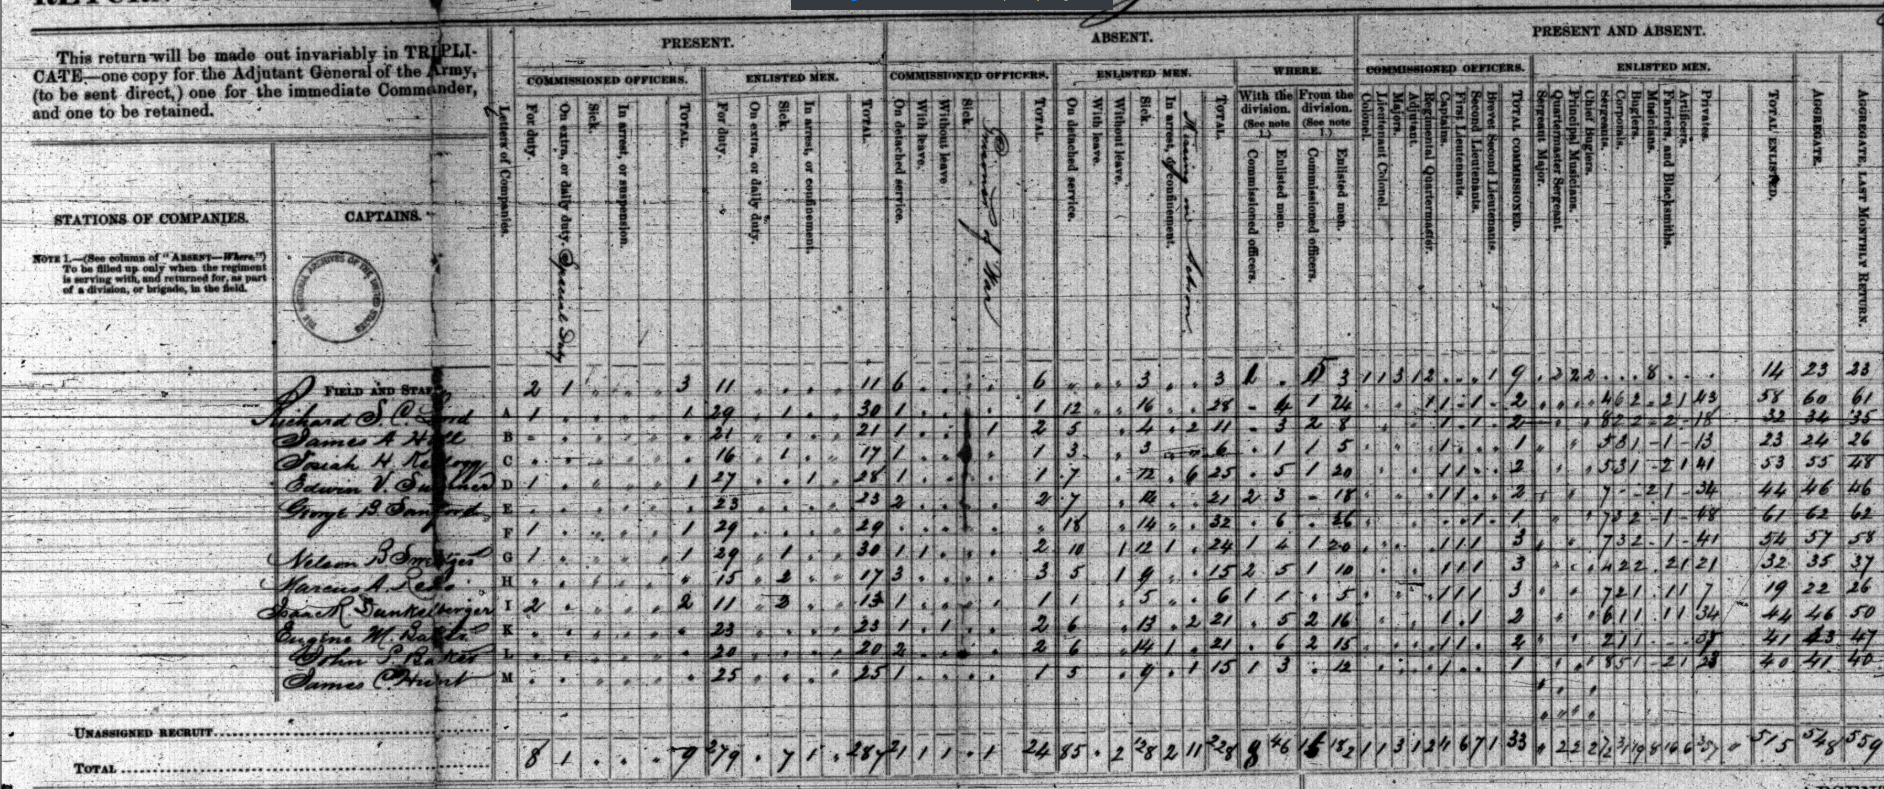 This return will be made out invariably in TRIPLI-
CATE—one copy for the Adjutant General of the Army,
(to be sent direct,) one for the immediate Commander,
and one to be retained.
STATIONS OF COMPANIES.
NOTE 1.—(See column of "ABSENT—Where.")
To be filled up only when the regiment
is serving with, and returned for, as part
of a division, or brigade, in the field.
CAPTAINS.
THE NATIONAL ARCHIVES OF THE UNITED STATES
Letters of Companies.
PRESENT.
COMMISSIONED OFFICERS.
For duty.
On extra, or daily duty. Special Duty
Sick.
In arrest, or suspension.
TOTAL.
ENLISTED MEN.
For duty.
On extra, or daily duty.
Sick.
In arrest, or confinement.
TOTAL.
ABSENT.
COMMISSIONED OFFICERS.
On detached service.
With leave.
Without leave
Sick.
Prisoner of War
TOTAL
ENLISTED MEN.
On detached service.
With leave.
Without leave.
Sick.
In arrest, or confinement.
Missing in Action
TOTAL.
WHERE.
With the division. (See note 1.)
Commissioned officers.
Enlisted men.
From the division. (See note 1.)
Commissioned officers.
Enlisted men.
PRESENT AND ABSENT.
COMMISSIONED OFFICERS.
Colonel.
Lieutenant Colonel.
Majors.
Adjutant.
Regimental Quartermaster.
Captains.
First Lieutenants.
Second Lieutenants.
Brevet Second Lieutenants.
TOTAL COMMISSIONED.
ENLISTED MEN.
Sergeant Major.
Quartermaster Sergeant.
Principal Musicians.
Chief Buglers.
Sergeants.
Corporals.
Buglers.
Musicians.
Farriers, and Blacksmiths.
Artificers.
Privates.
TOTAL ENLISTED.
AGGREGATE.
AGGREGATE, LAST MONTHLY RETURN.
FIELD AND STAFF 2 1 3 11 11 6 6 3 3 3 1 1 3 1 2 1 9 2 2 2 8 14 23 23
Richard S. C. Lord A 1 1 29 1 30 1 1 12 16 28 4 1 24 1 1 1 2 4 6 2 2 1 43 58 60 61
James A. Hall B 21 21 1 1 2 5 4 2 11 3 2 8 1 1 2 8 2 2 2 18 32 34 35
Josiah H. Kellogg C 16 1 17 1 1 3 3 6 1 1 5 1 1 5 3 1 1 13 23 24 26
Edwin V. Sumner D 1 1 27 1 28 1 1 7 12 6 25 5 1 20 1 1 2 5 3 1 2 1 41 53 55 48
George B. Sanford E 23 23 2 2 7 14 21 2 3 18 1 1 2 7 2 1 34 44 46 46
F 1 1 29 29 18 14 32 6 26 1 1 7 3 2 1 48 61 62 62
Nelson B. Sweitzer G 1 1 29 1 30 1 1 2 10 1 12 1 24 1 4 1 20 1 1 1 3 7 3 2 1 41 54 57 58
Marcus A. Reno H 15 2 17 3 3 5 1 9 15 2 5 1 10 1 1 1 3 4 2 2 2 1 21 32 35 37
Isaac R. Dunkelberger I 2 2 11 2 13 1 1 1 5 6 1 1 5 1 1 1 3 7 2 1 1 1 7 19 22 26
Eugene M. Baker K 23 23 1 1 2 6 13 2 21 5 2 16 1 1 2 6 1 1 1 1 34 44 46 50
John P. Baker L 20 20 2 2 6 14 1 21 6 2 15 1 1 2 2 1 1 41 43 47
James C. Hunt M 25 25 1 1 5 9 1 15 1 3 12 1 1 8 5 1 2 1 23 40 41 40
UNASSIGNED RECRUIT
TOTAL 8 1 9 279 7 1 287 21 1 1 1 24 85 2 128 2 11 228 9 46 15 182 1 1 3 1 2 11 6 7 1 33 2 2 2 72 31 19 8 16 6 357 515 548 559